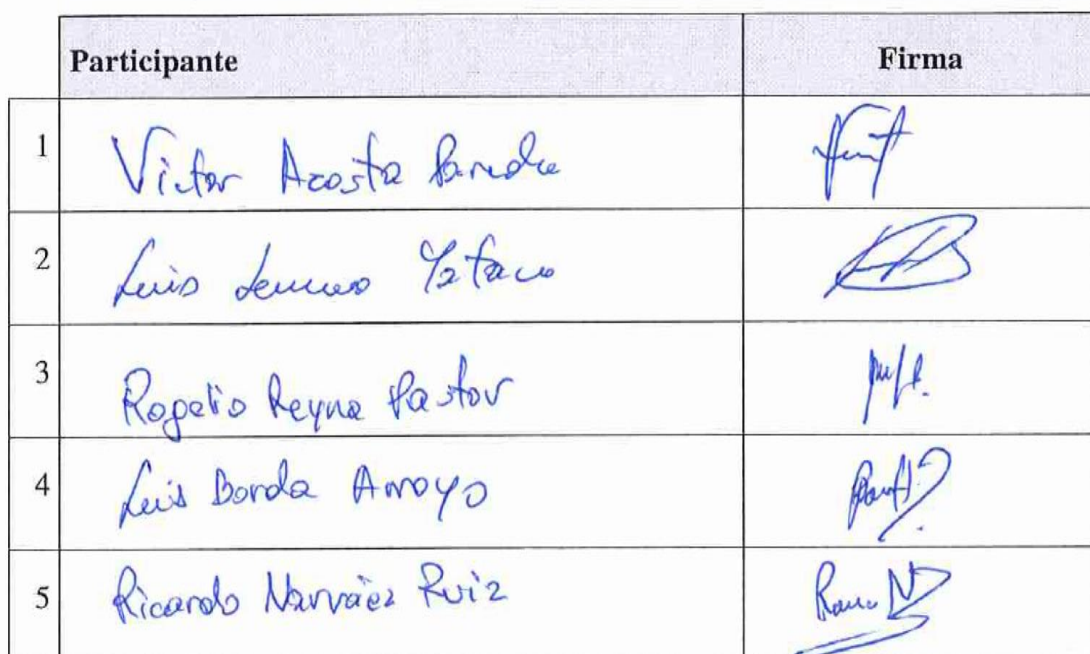 Participante Firma
1 Victor Acosta Paredes
2 Luis Yataco
3 Rogelio Reyna Pastor
4 Luis Borda Arroyo
5 Ricardo Narváez Ruiz